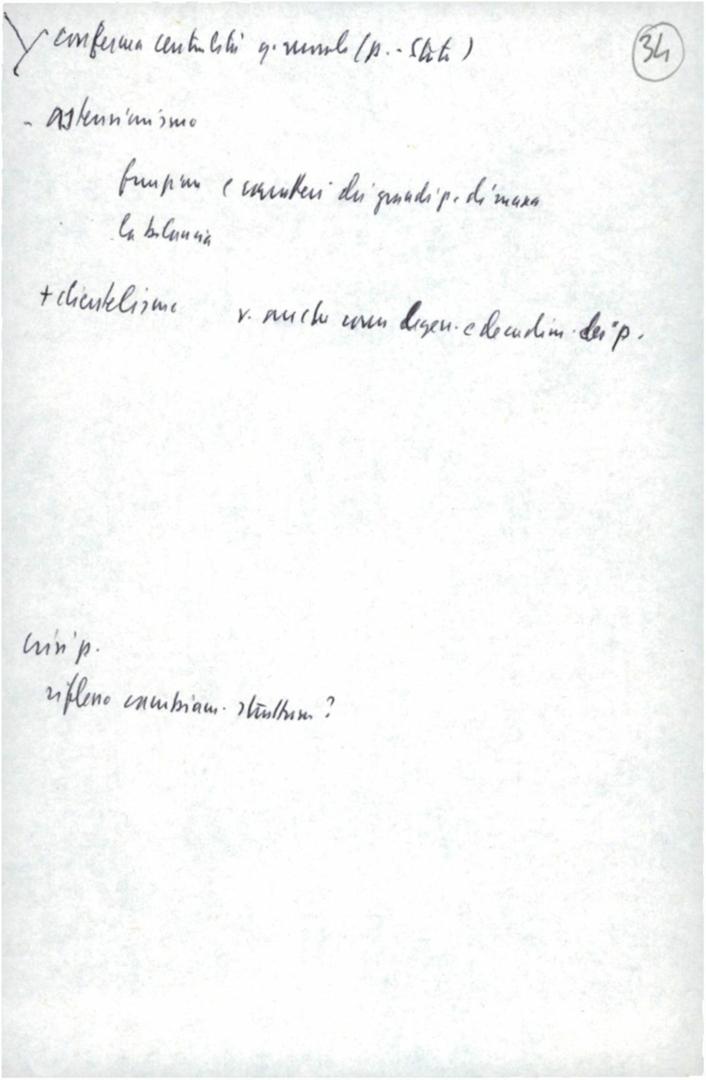 conferma centralità q. morale (p. - Stato)
34
- astensionismo
funzioni e caratteri dei grandi p. di massa
la bilancia
+ clientelismo v. anche come degen. e decadim. dei p.
crisi p.
riflesso cambiam. struttura ?